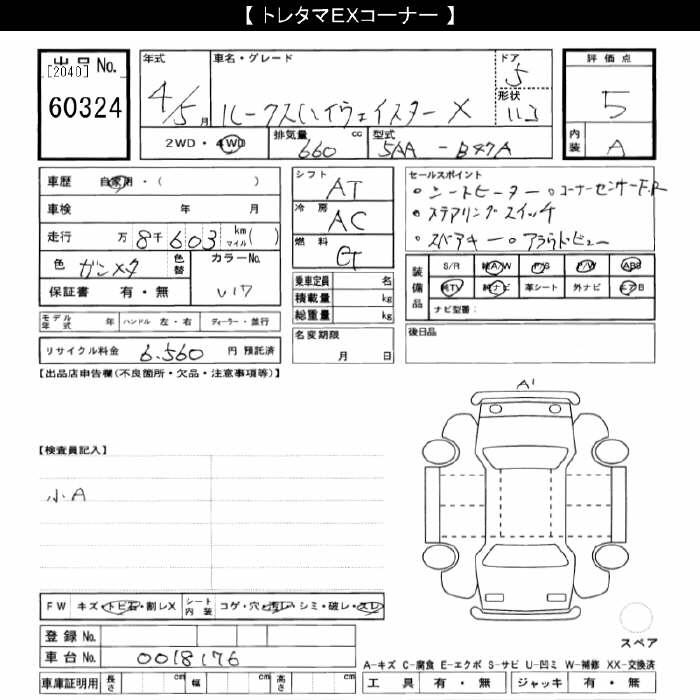 【 トレタマEXコーナー 】
出品No.
[2040]
60324
年式
4/5月
車名・グレード
ルークスハイウェイスター X
ドア
5
形状
評価点
5
内装
A
2WD・4WD
排気量
660
cc
型式
5AA - B47A
車歴 自家用・( )
車検 年 月
走行 万 8千603 km マイル ( )
色 ガンメタ
色替
カラーNo.
保証書 有・無
モデル年式 年
ハンドル 左・右
ディーラー・並行
リサイクル料金 6,560 円 預託済
シフト
AT
冷房
AC
燃料
乗車定員 名
積載量 kg
総重量 kg
名変期限
月 日
セールスポイント
・シートヒーター ・コーナーセンサーF.R
・ステアリングスイッチ
・スペアキー ・アラウドビュー
装備品
S/R 純A/W P/S P/W ABS
純TV 純ナビ 革シート 外ナビ エアB
ナビ型番:
後日品
【出品店申告欄(不良箇所・欠品・注意事項等)】
A1
【検査員記入】
小A
FW キズ・トビ石・割レX
シート内装 コゲ・穴・汚レ・シミ・破レ・スレ
登録No.
車台No. 0018176
車庫証明用 長さ cm 幅 cm 高さ cm
スペア
A-キズ C-腐食 E-エクボ S-サビ U-凹ミ W-補修 XX-交換済
工具 有・無 ジャッキ 有・無